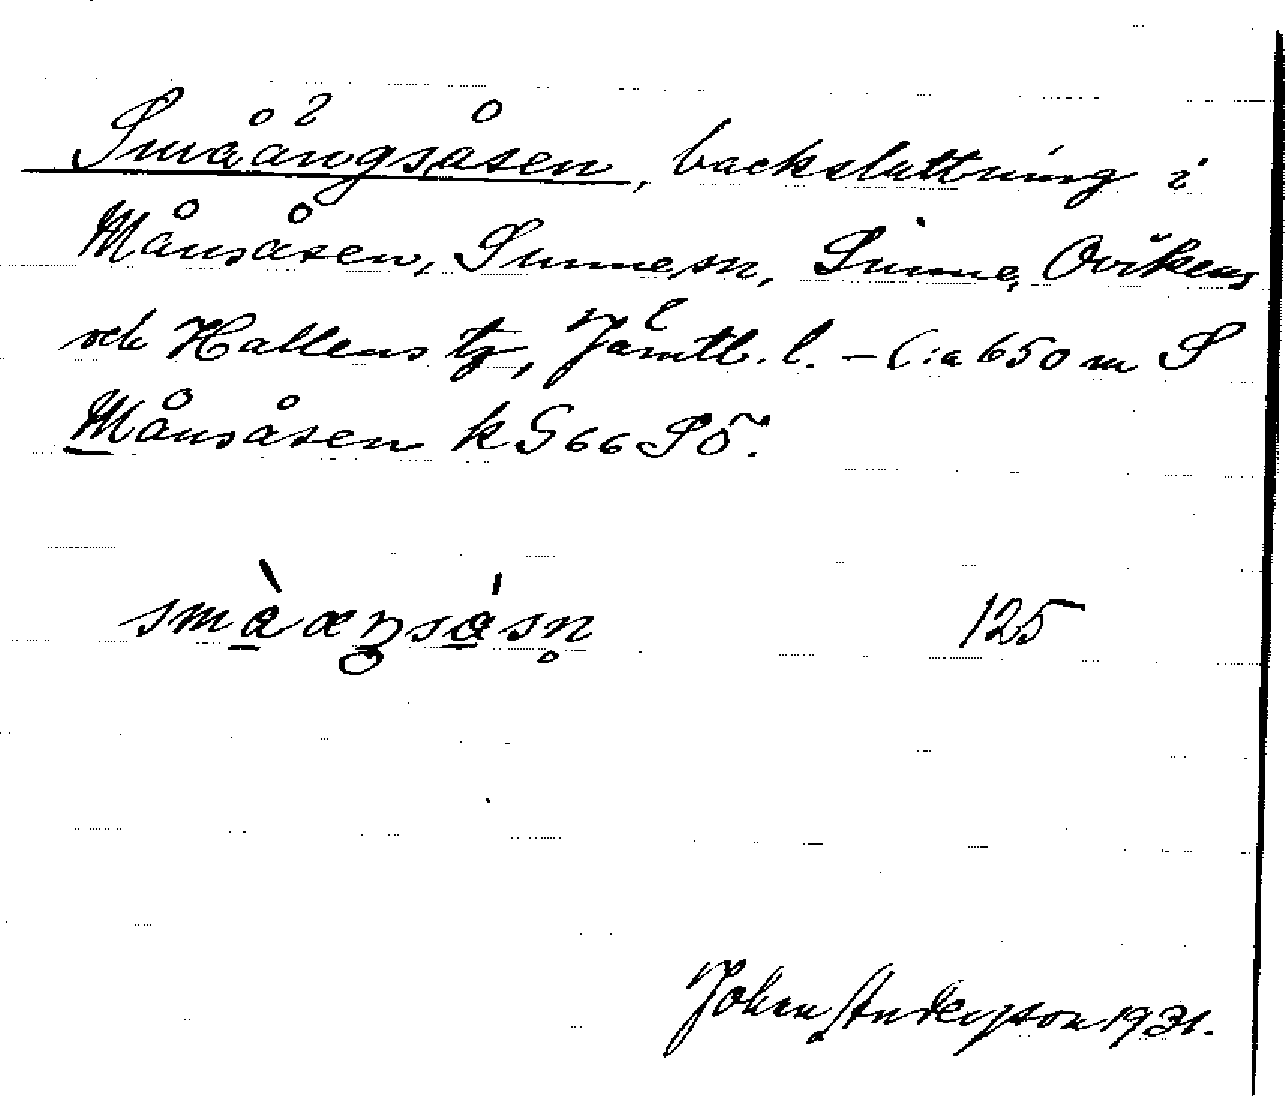 Småängsåsen, backslåttning i
Månsåsen, Sunne sn, Sunne, Ovikens
och Hallens tg, Jämtl. l. – C:a 650 m S
Månsåsen k G66 SÖ.
smàæŋsásn̥ 125
John Andersson 1931.